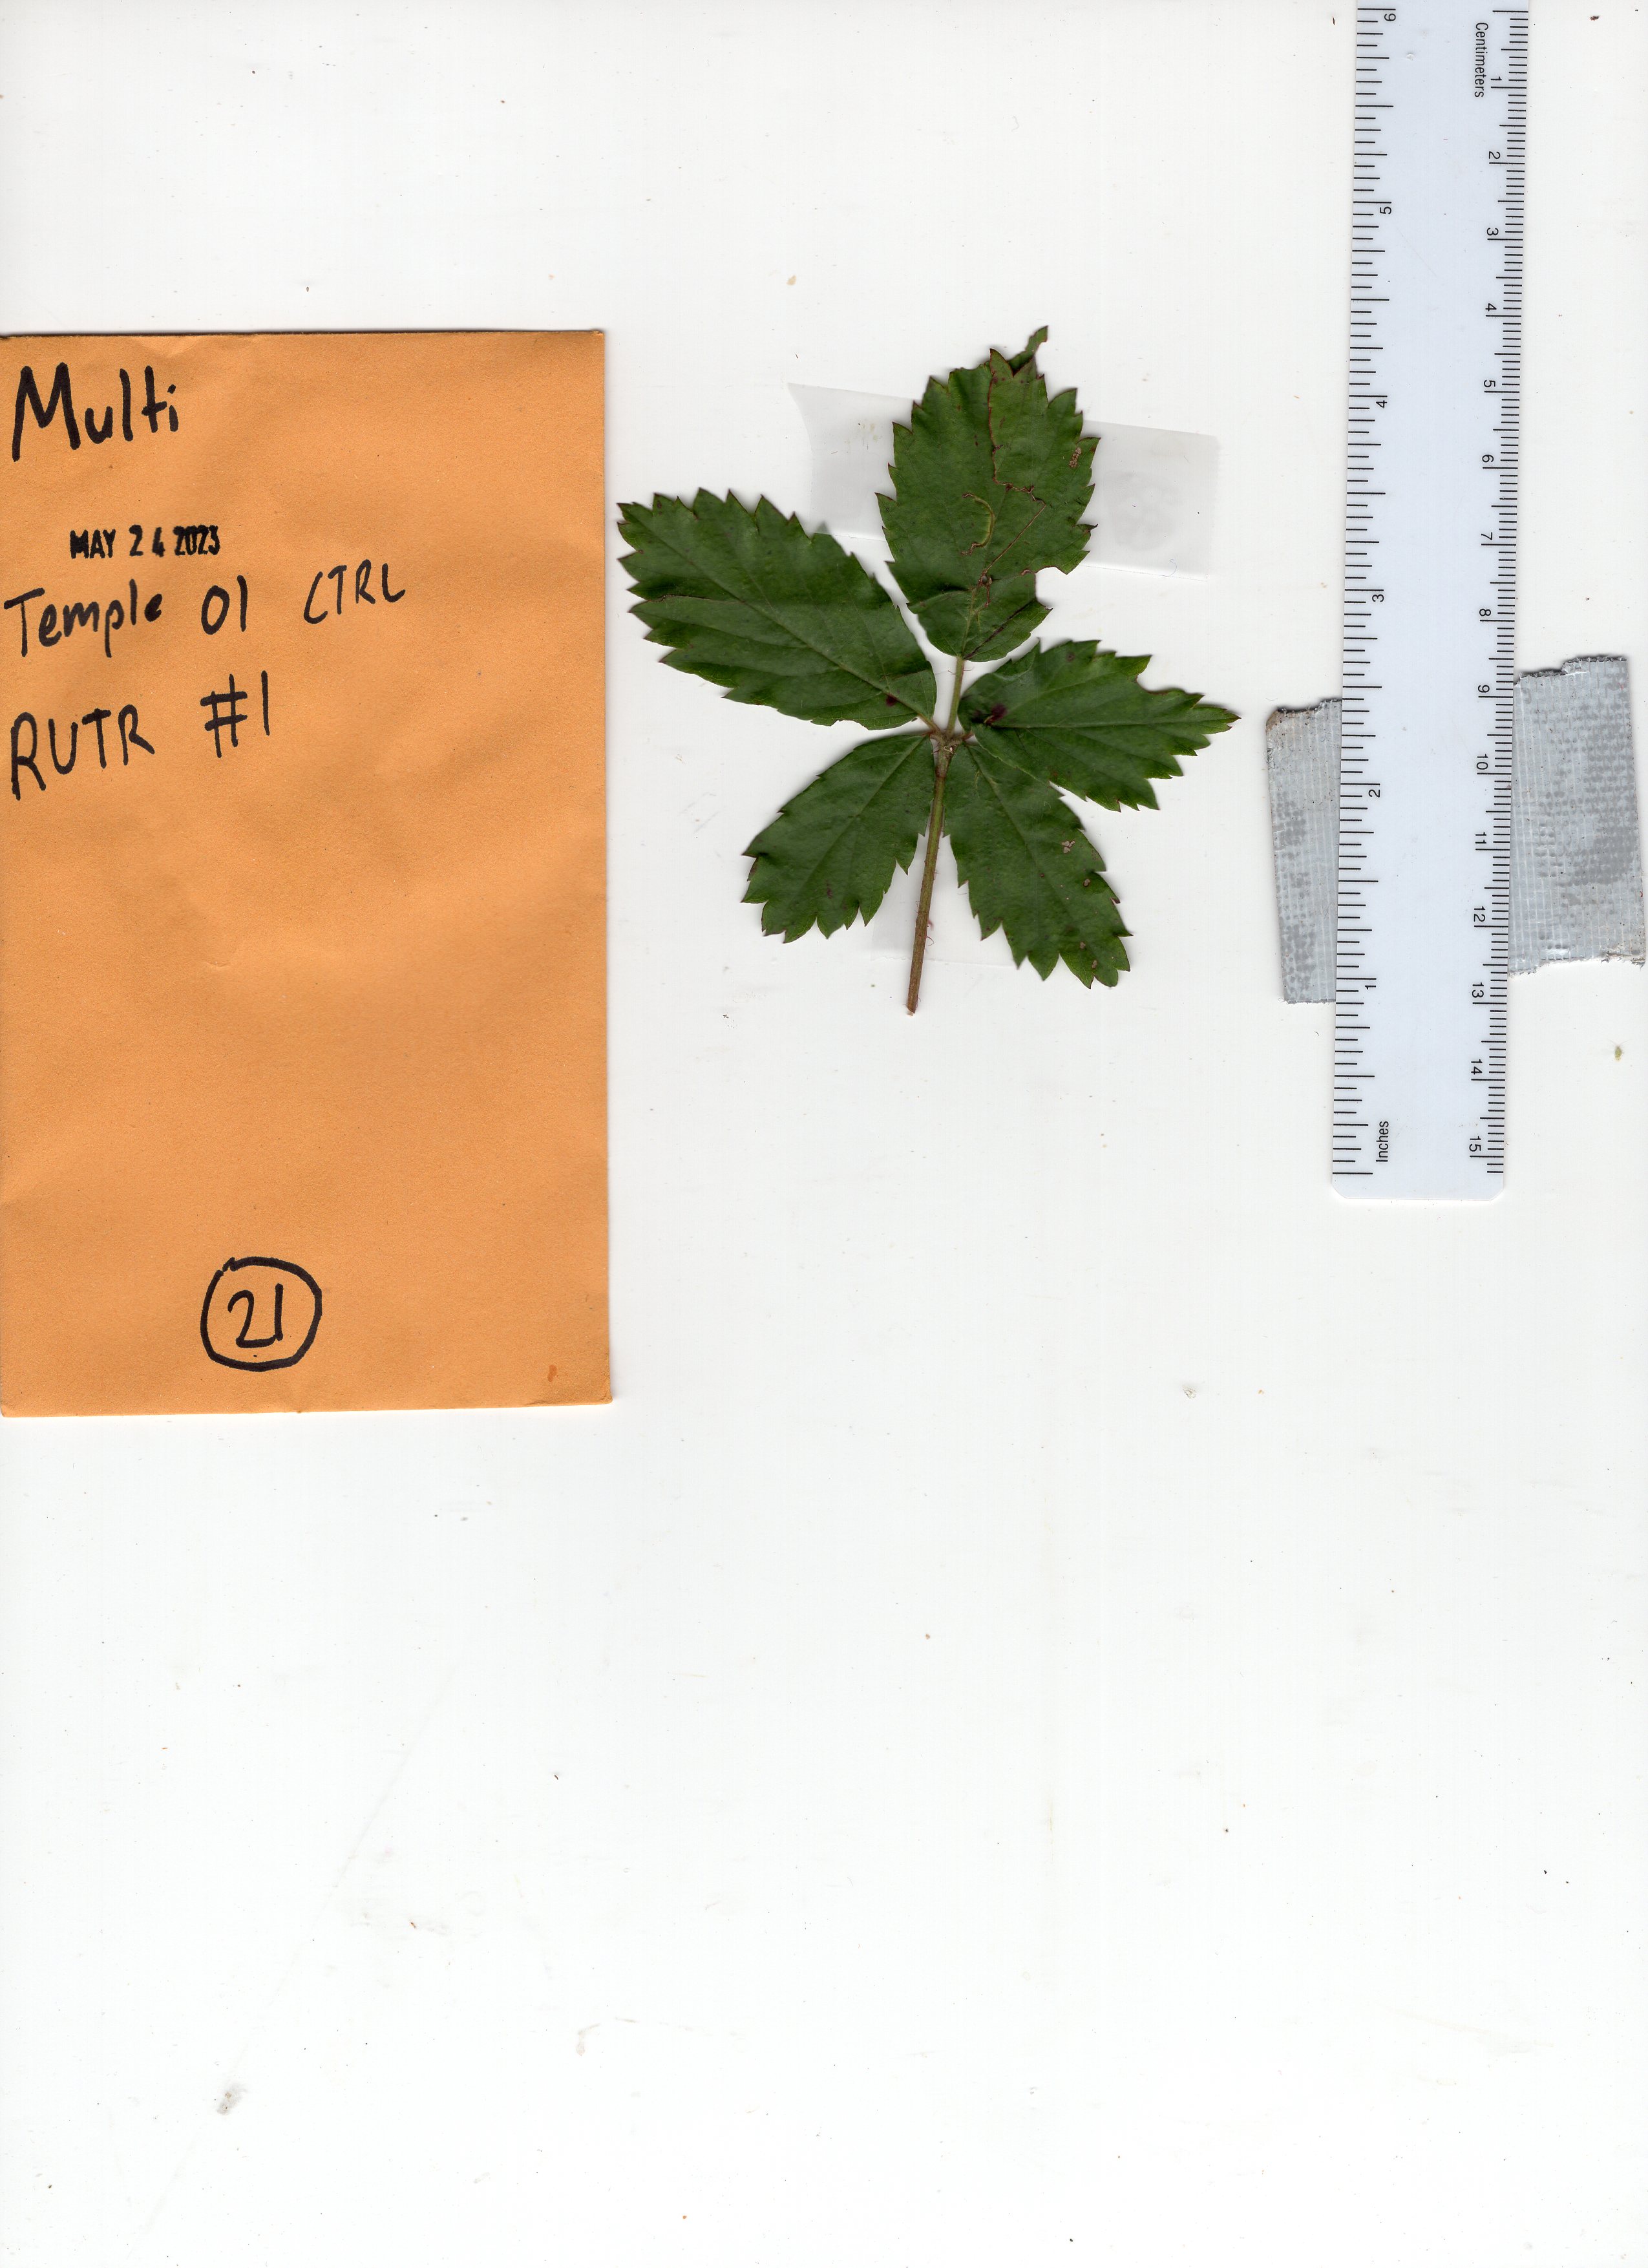 Multi
MAY 24 2023
Temple 01 CTRL
RUTR #1
21
Centimeters
1
2
3
4
5
6
7
8
9
10
11
12
13
14
15
6
5
4
3
2
1
Inches